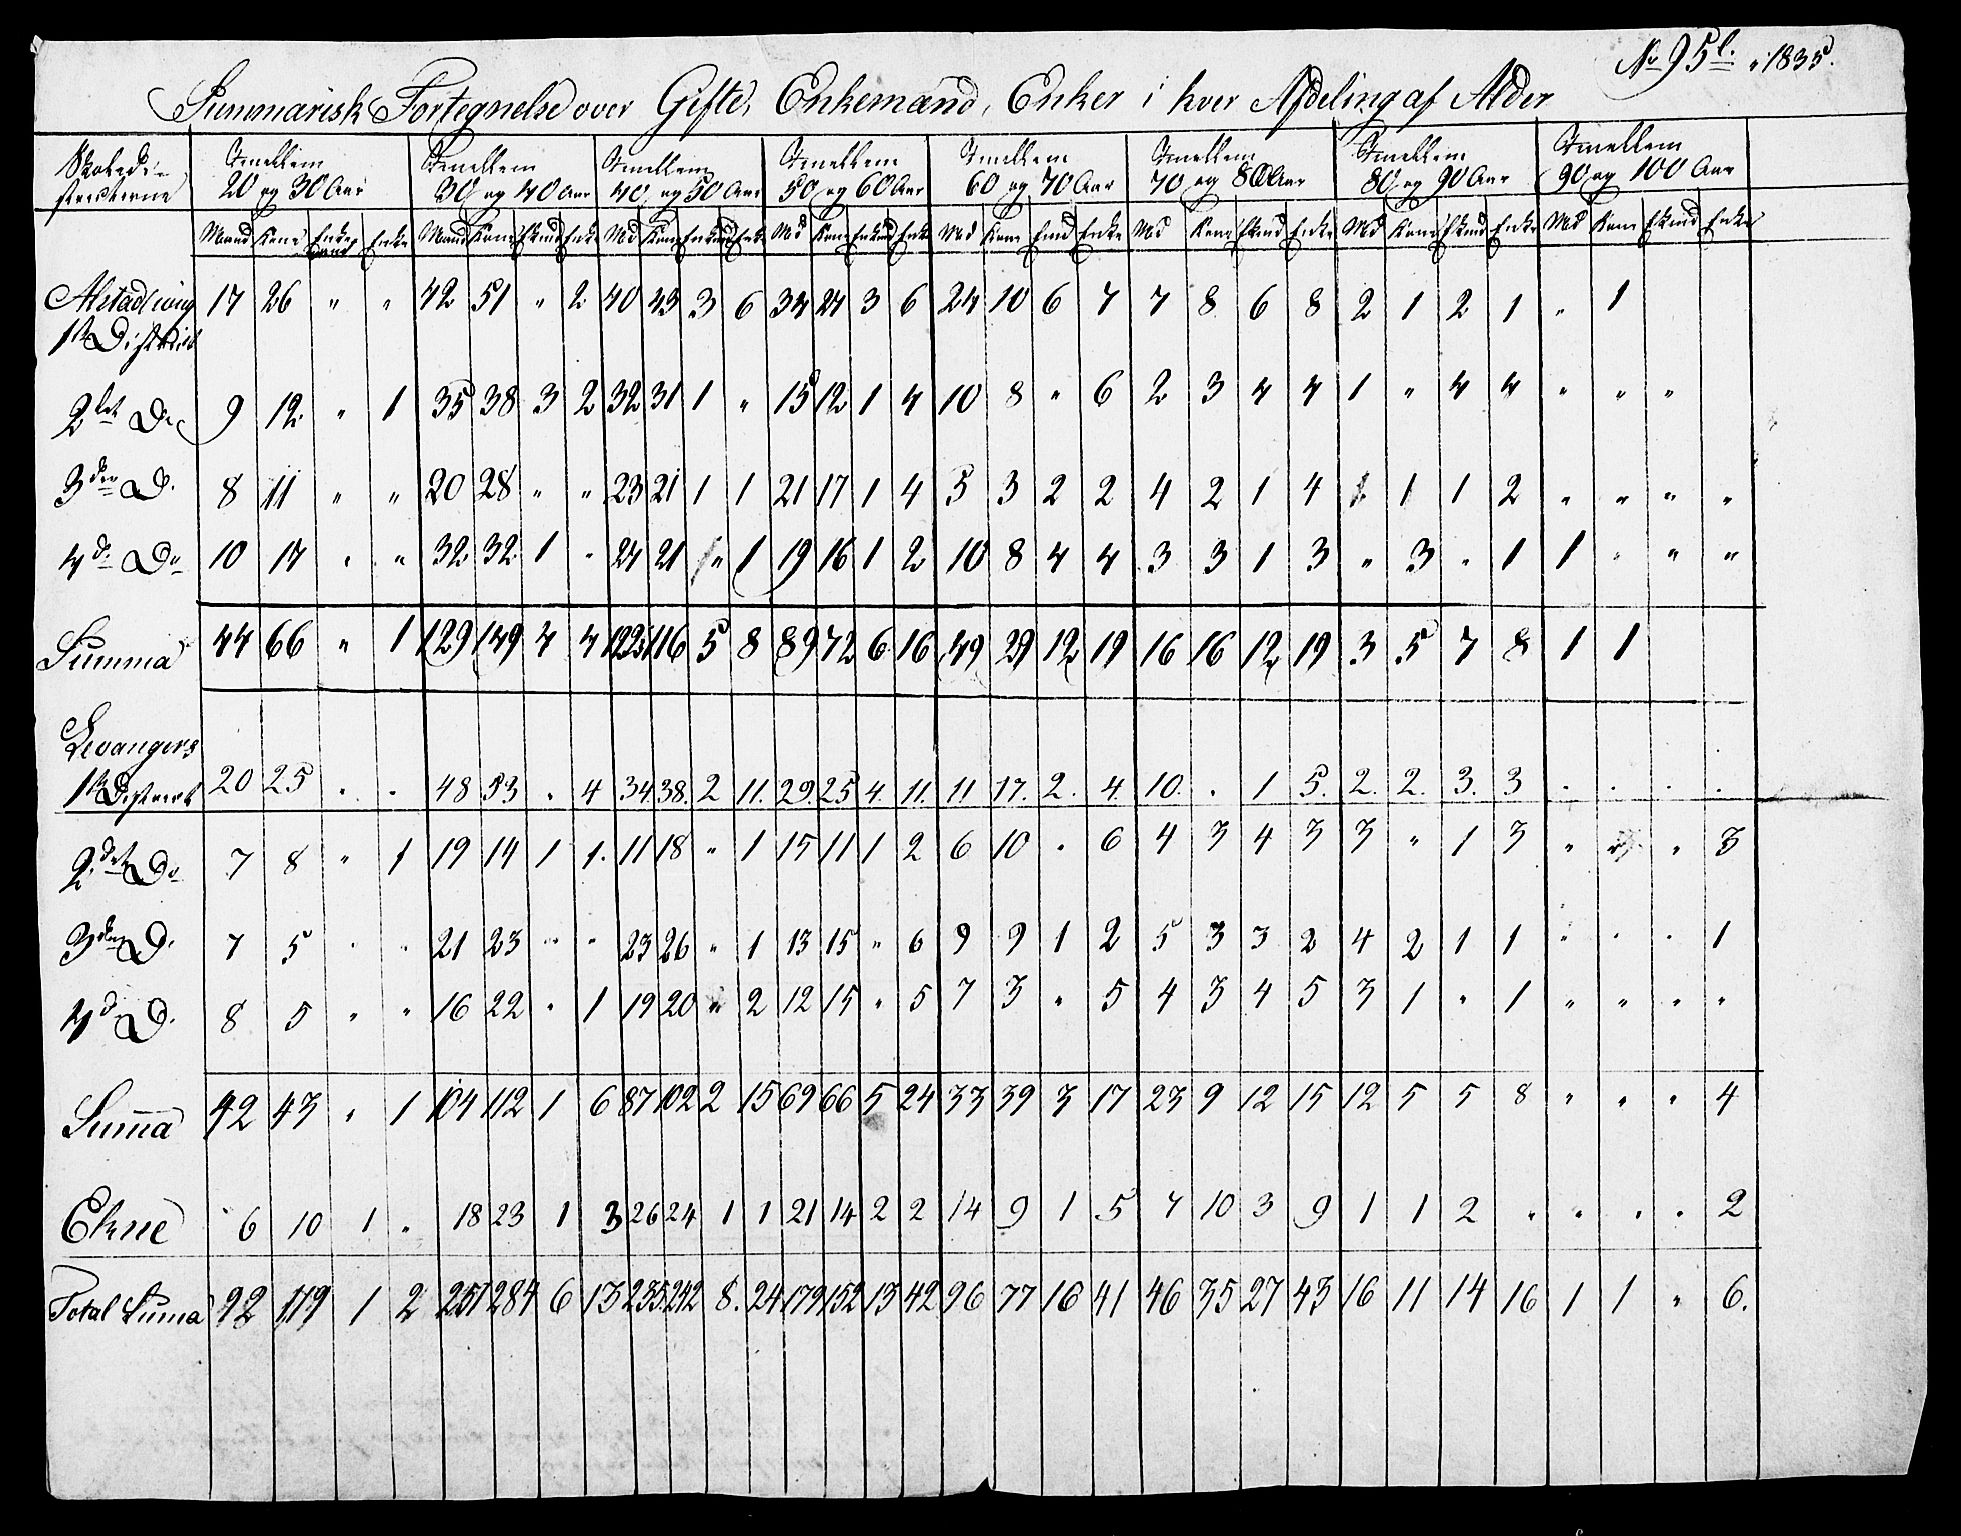 No 95 l. 1835.
Summarisk Fortegnelse over Gifte, Enkemænd, Enker i hver Afdeling af Alder
Skoledi= Imellem Imellem Imellem Imellem Imellem Imellem Imellem Imellem
stricterne 20 og 30 Aar 30 og 40 Aar 40 og 50 Aar 50 og 60 Aar 60 og 70 Aar 70 og 80 Aar 80 og 90 Aar 90 og 100 Aar
Mand Kone Enke mand Enke Mand Kone Ekmd Enke Md Kone Enkmd Enk Md Kone Enkmd Enke Md Kone Emd Enke Md Kone Ekmd Enke Md Kone Ekmd Enke Md Kone Ekmd Enke
Alstadhoug 17 26 " " 42 51 " 2 40 43 3 6 34 27 3 6 24 10 6 7 7 8 6 8 2 1 2 1 " 1
1ste District
2det Do 9 12 " 1 35 38 3 2 32 31 1 " 15 12 1 4 10 8 " 6 2 3 4 4 1 " 4 4 " " "
3die D. 8 11 " " 20 28 " " 23 21 1 1 21 17 1 4 5 3 2 2 4 2 1 4 1 1 2 " " " "
4de Do 10 17 " " 32 32 1 " 27 21 " 1 19 16 1 2 10 8 4 4 3 3 1 3 " 3 " 1 1 " " "
Summa 44 66 " 1 129 149 4 4 122 116 5 8 89 72 6 16 49 29 12 19 16 16 12 19 3 5 7 8 1 1
Levangers
1ste District 20 25 . . 48 53 . 4 34 38. 2 11. 29. 25 4. 11. 11 17. 2. 4. 10. . 1 5. 2. 2. 3. 3 . . . .
2det Do 7 8 " 1 19 14 1 1. 11 18 " 1 15 11 1 2 6 10 . 6 4 3 4 3 3 " 1 3 " " 3
3die D. 7 5 . . 21 23 " " 23 26 " 1 13 15 " 6 9 9 1 2 5 3 3 2 4 2 1 1 " . . 1
4d D. 8 5 " " 16 22 " 1 19 20 " 2 12 15 " 5 7 3 " 5 4 3 4 5 3 1 " 1 " " " "
Suma 42 43 " 1 104 112 1 6 87 102 2 15 69 66 5 24 33 39 3 17 23 9 12 15 12 5 5 8 " " " 4
Ekne 6 10 1 . 18 23 1 3 26 24 1 1 21 14 2 2 14 9 1 5 7 10 3 9 1 1 2 " " " " 2
Total Suma 92 119 1 2 251 284 6 13 235 242 8. 24 179 152 13 42 96 77 16 41 46 35 27 43 16 11 14 16 1 1 " 6.